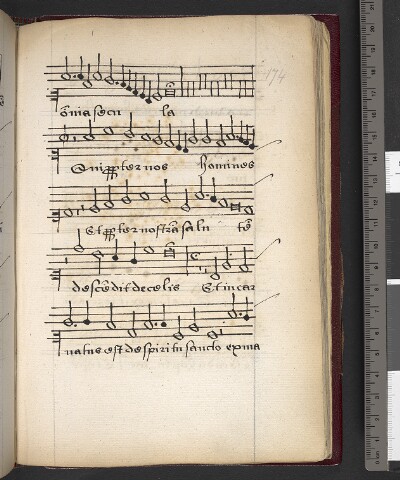 174
om̄ia secu la
Qui ꝓpter nos homines
Et ꝓpter nostrā salu tē
descēdit de celis Et incar
natus est de spiritu sancto ex ma